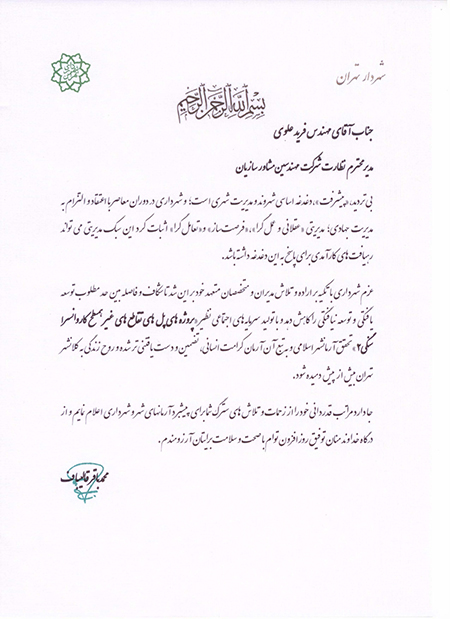 شهردار تهران
بسم الله الرحمن الرحیم
جناب آقای مهندس فرید علوی
مدیر محترم نظارت شرکت مهندسین مشاور سازیان
بی تردید، «پیشرفت»، دغدغه اساسی شهروند و مدیریت شهری است؛ و شهرداری در دوران معاصر با اعتقاد و التزام به
مدیریت جهادی؛ مدیریتی «عقلانی و عمل گرا»، «فرصت ساز» و «تعامل گرا» اثبات کرد این سبک مدیریتی می تواند
رهیافت های کارآمدی برای پاسخ به این دغدغه داشته باشد.
عزم شهرداری با تکیه بر اراده و تلاش مدیران و متخصصان متعهد خود بر این شد تا شکاف و فاصله بین حد مطلوب توسعه
یافتگی و توسعه نیافتگی را کاهش دهد و با تولید سرمایه های اجتماعی نظیر «پروژه های پل های تقاطع های غیر همسطح کاروانسرا
سنگی ۲» تحقق آرمانشهر اسلامی و به تبع آن آرمان کرامت انسانی، تضمین و دست یافتنی تر شده و روح زندگی به کلانشهر
تهران بیش از پیش دمیده شود.
جا دارد مراتب قدردانی خود را از زحمات و تلاش های مشترک شما برای پیشبرد آرمانهای شهر و شهرداری اعلام نمایم و از
درگاه خداوند منان توفیق روز افزون توام با صحت و سلامت برایتان آرزومندم.
محمد باقر قالیباف